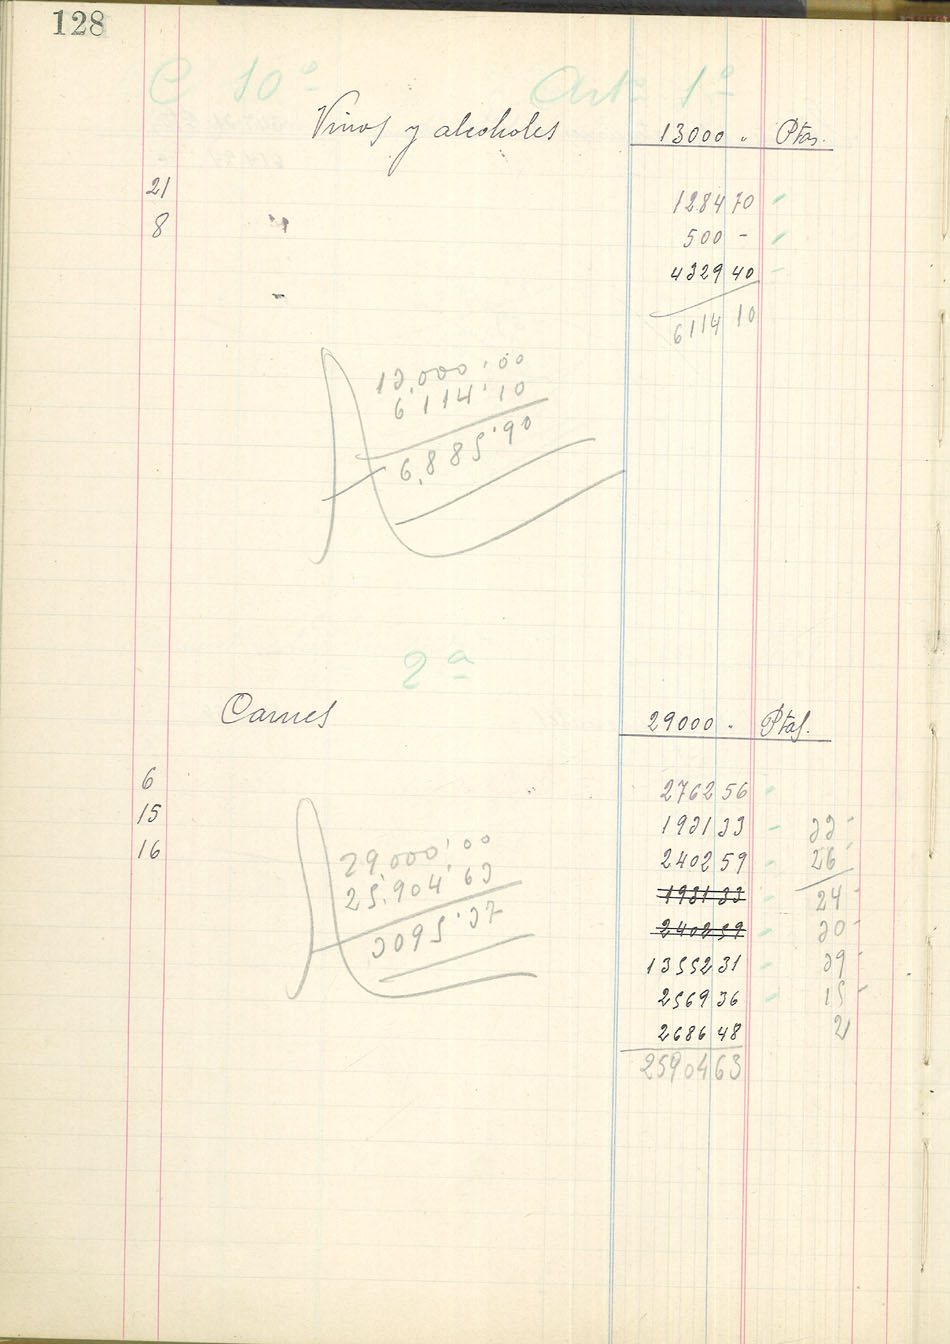 128
C 10º Artº 1º
Vinos y alcoholes 13000 . Ptas.
21 1284 70
8 " 500 -
4329 40
6114 10
13.000'00
6.114'10
6.885'90
2ª
Carnes 29000 . Ptas.
6 2762 56
15 1931 33 33
16 2402 59 26
1931 33 24
2402 59 30
13552 31 39
2569 36 15
2686 48 21
25904 63
29,000,00
25.904,63
3095.37